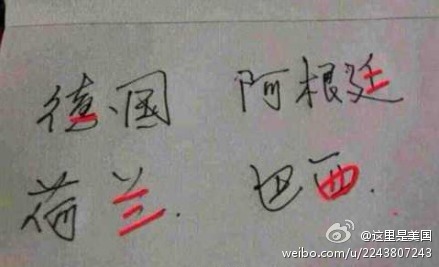 德国 阿根廷
荷兰. 巴西.
@这里是美国
weibo.com/u/2243807243